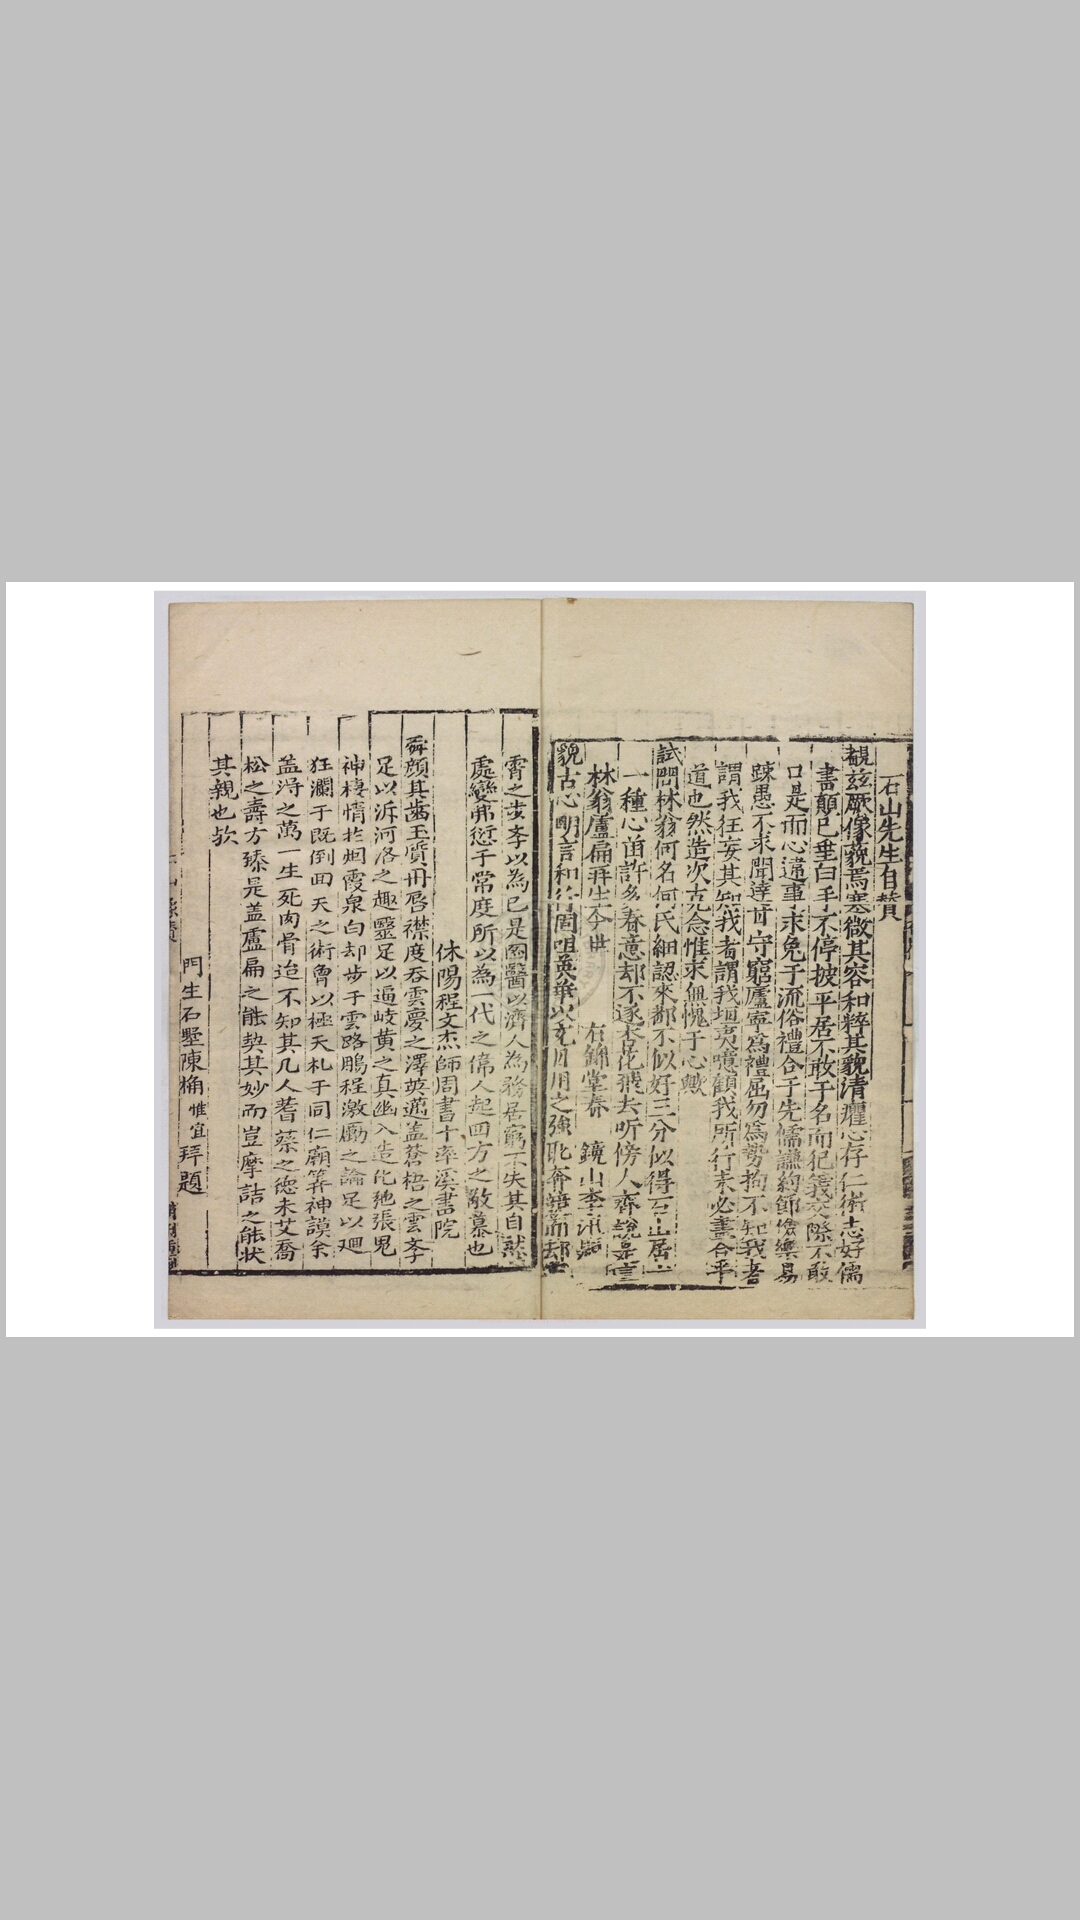 石山先生自贊
覩茲厥像藐焉寒微其容和粹其貌清癯心存仁術志好儒
書顛已垂白手不停披平居不敢于名而犯義交際不敢
口是而心違事求免于流俗禮合于先儒謙約節儉樂易
踈愚不求聞達甘守窮廬寧爲禮屈勿爲勢拘不知我者
謂我狂妄其知我者謂我坦夷噫顧我所行未必盡合乎
道也然造次克念惟求無愧于心歟
試問林翁何名何氏細認來都不似好三分似得石山居士
一種心苗許多春意却不逐杏花飛去听傍人齊說是
林翁盧扁再生今世 右錦堂春 鏡山李汛
貌古心明言和行固咀英華以充日用之強耻奔
霄之步李以為己是固醫以濟人為務居窮不失其自
處變弗愆于常度所以為一代之偉人起四方之敬慕也
休陽程文杰師周書于率溪書院
舜顔其齒玉質丹唇襟度吞雲夢之澤英邁盖蒼梧之雲孝
足以泝河洛之趣靈足以逼岐黄之真幽入造化弛張鬼
神棲情於烟霞泉石却步于雲路鵬程激勵之論足以廻
狂瀾于既倒回天之術曾以極夭札于同仁廟筭神謨余
盖淂之萬一生死肉骨迨不知其几人耆蔡之德未艾喬
松之壽方臻是盖盧扁之能契其妙而豈摩詰之能狀
其親也欤
門生石墅陳桷惟宜拜題